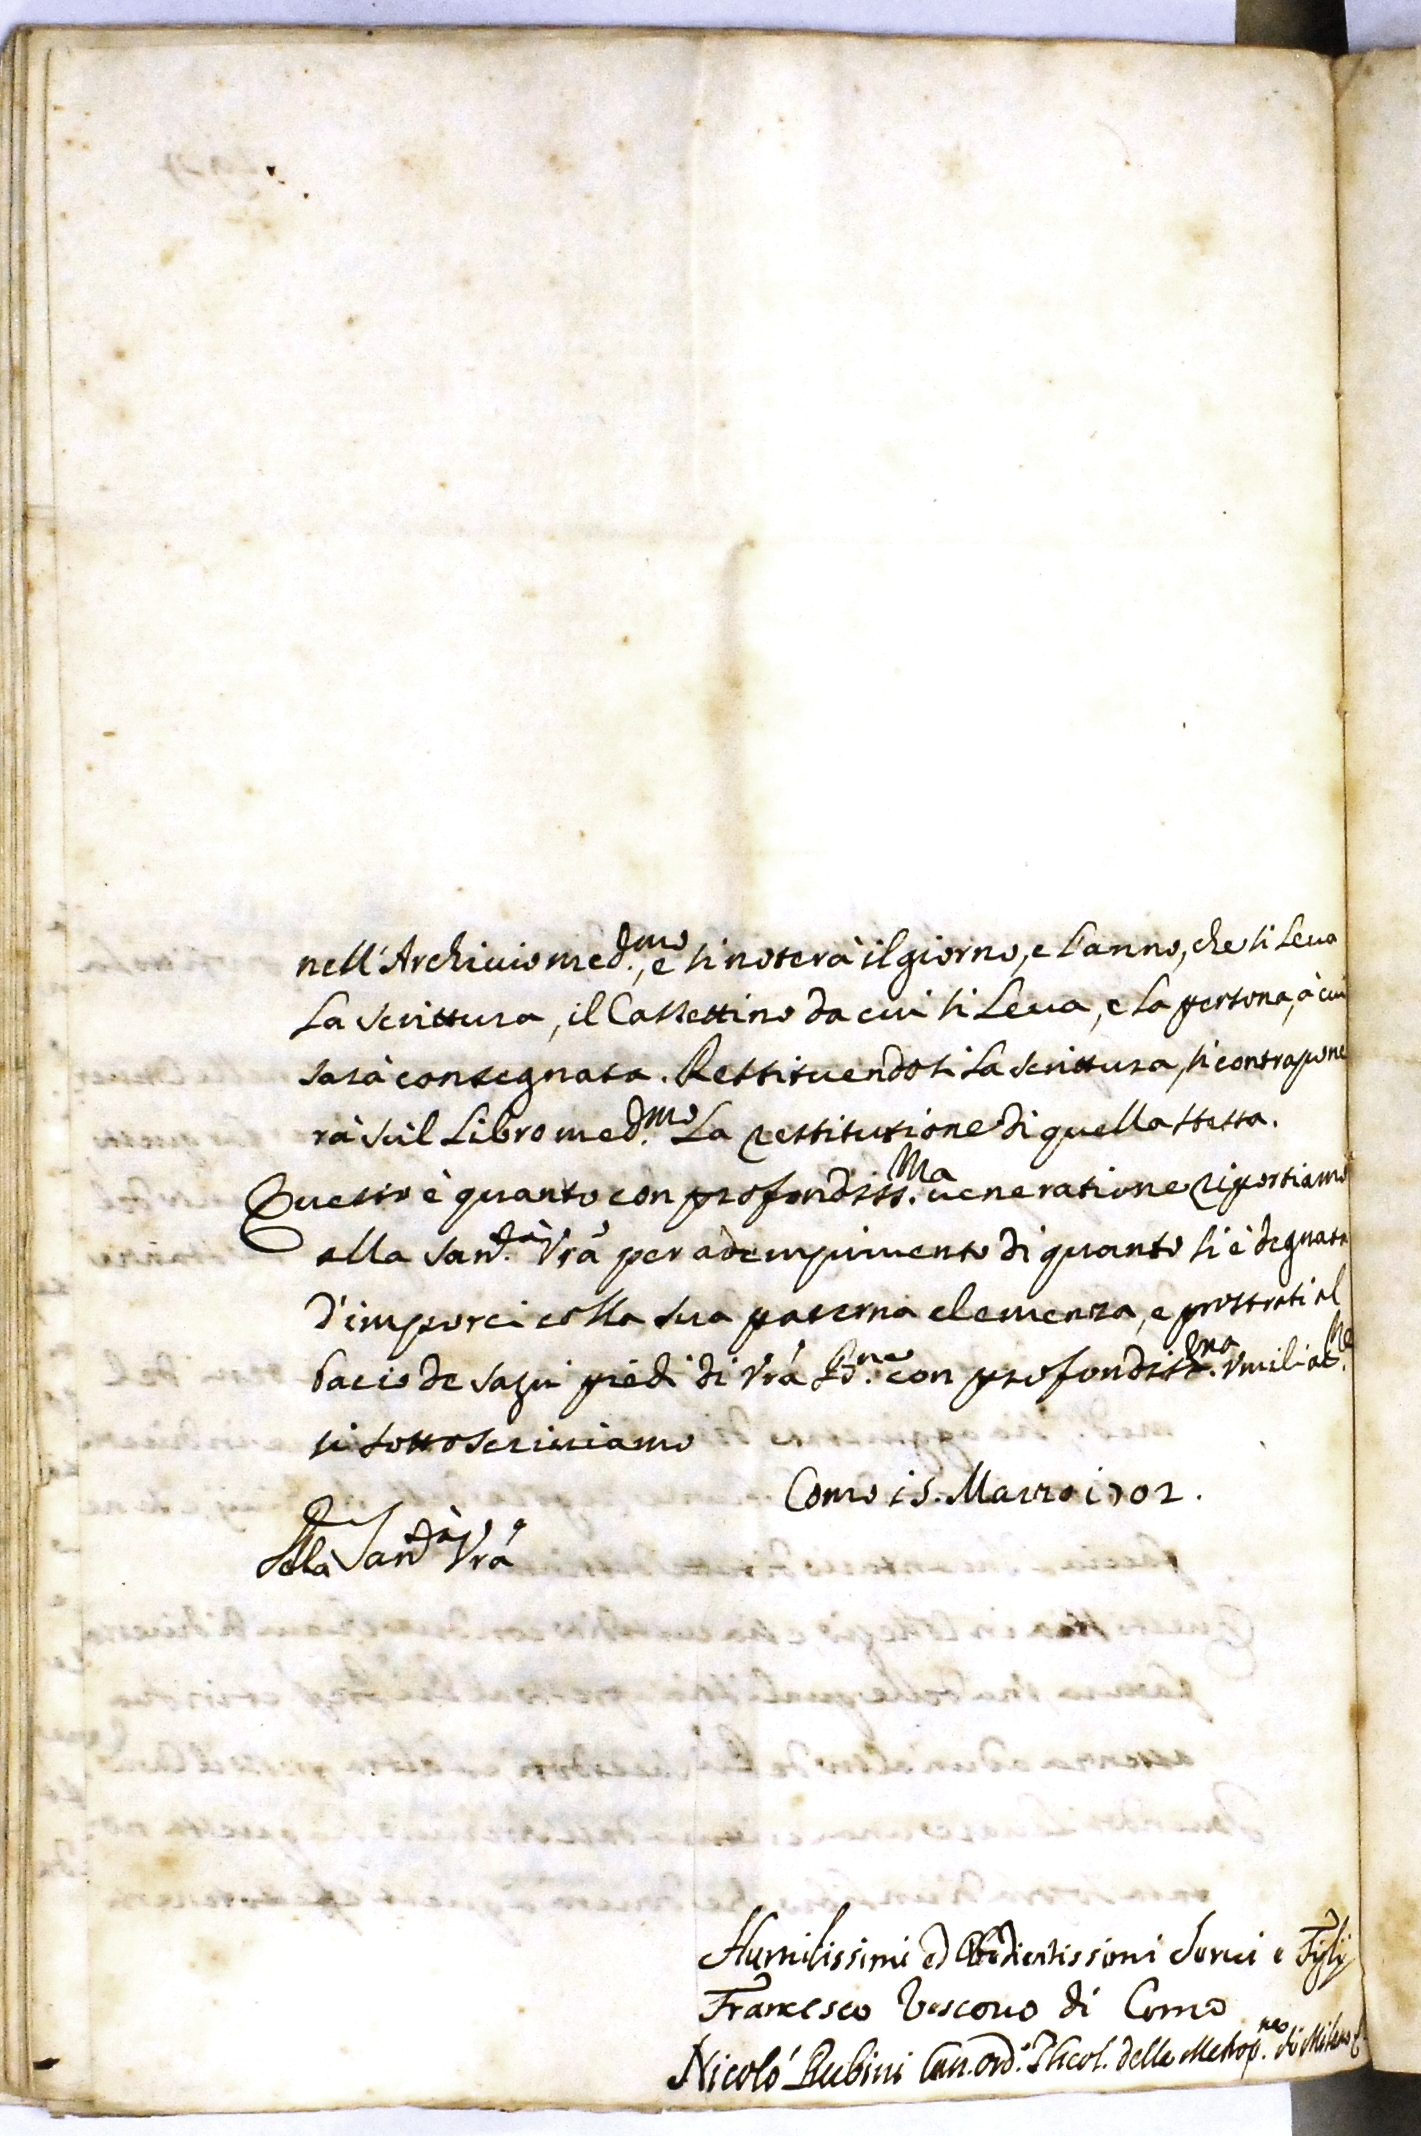 nell'Archivio med.mo, e si noterà il giorno, e L'anno, che si Leua
La scrittura, il Cassettino da cui si Leua, e La persona, à cui
sarà consegnata. Restituendosi La scrittura, si contrapone
rà sù il Libro med.mo La restitutione di quella stessa.
Questo è quanto con profondiss.ma ueneratione riportiamo
alla San.tà Vrã per adempimento di quanto si è degnata
d'imporci colla sua paterna clemenza, e prostrati al
bacio de sagri piedi di Vrã B.ne con profondiss.ma vmiliat.ne
ci sottoscriuiamo
Como 15. Marzo 1702.
Della San.tà Vrã
Humilissimi ed Obedientissimi Serui e Figlij
Francesco Vescouo di Como
Nicolò Rubini Can. Ord.o Theol. della Metrop.na di Milano